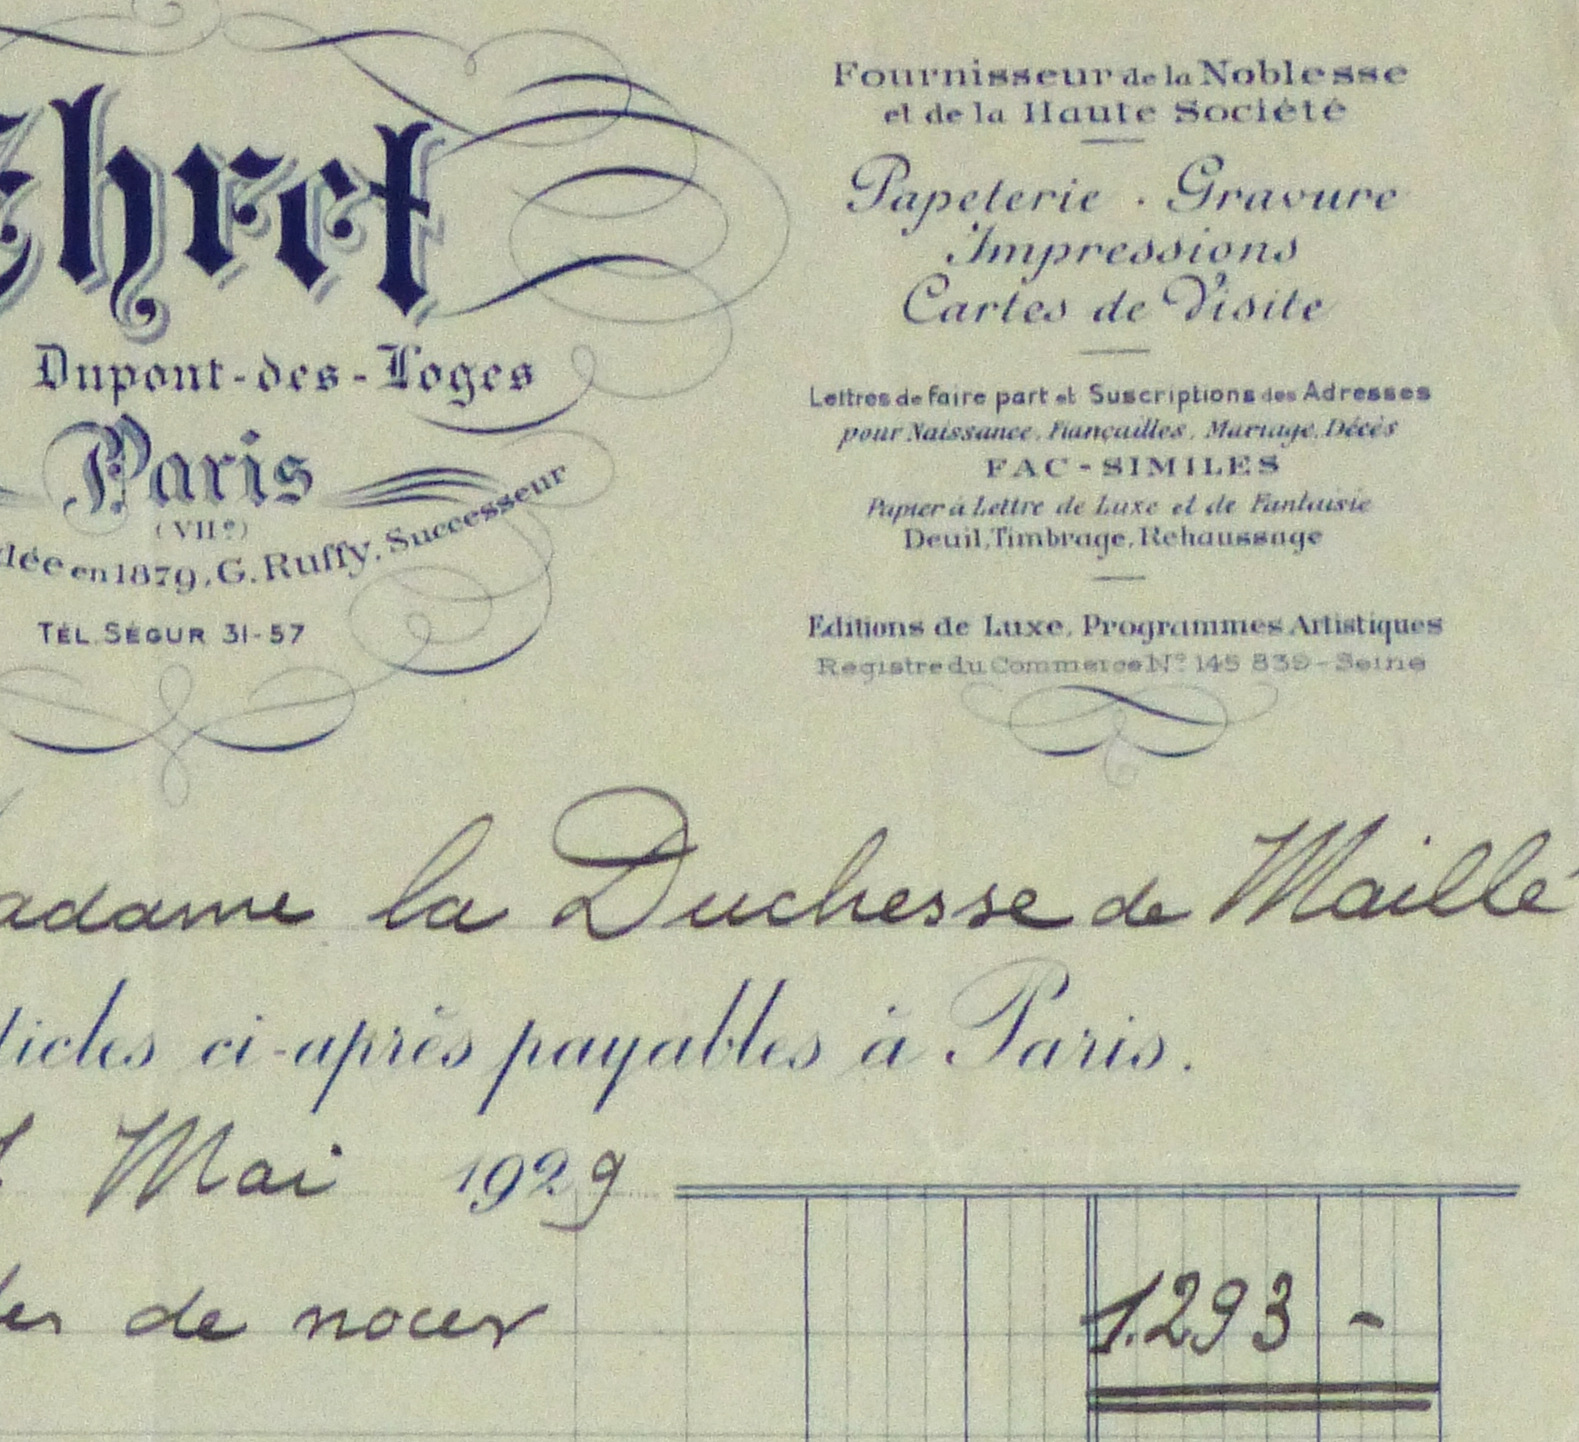 Ehret
Dupont-des-Loges
Paris
(VIIe)
en 1879, G. Ruffy, Successeur
TÉL. SÉGUR 31-57
Fournisseur de la Noblesse
et de la Haute Société
Papeterie · Gravure
Impressions
Cartes de Visite
Lettres de faire part et Suscriptions des Adresses
pour Naissance, Fiançailles, Mariage, Décès
FAC-SIMILES
Papier à Lettre de Luxe et de Fantaisie
Deuil, Timbrage, Rehaussage
Editions de Luxe, Programmes Artistiques
Registre du Commerce No 145 839 - Seine
adame la Duchesse de Maillé
ticles ci-après payables à Paris.
Mai 1929
de noces 1.293 -